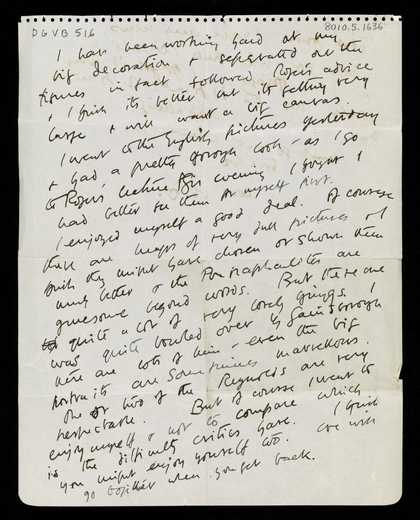 DGVB 516
8010.5.1636
I have been working hard at my
big decoration & separated out the
figures in fact followed Roger's advice
& I think its better but its getting very
large & will want a big canvas.
I went to the English pictures yesterday
& had a pretty thorough look - as I go
to Rogers' lecture this evening I thought I
had better see them for myself first.
I enjoyed myself a good deal. Of course
there are heaps of very dull pictures & I
think they might have chosen or shown them
much better & the Preraphaelites are
gruesome beyond words. But there are
quite a lot of very lovely things. I
was quite bowled over by Gainsborough
here are lots of him - even the big
portraits are sometimes marvellous.
One or two of the Reynolds are very
respectable. But of course I want to
enjoy myself & not to compare which
is the difficulty critics have. I think
you might enjoy yourself too. we will
go together when you get back.